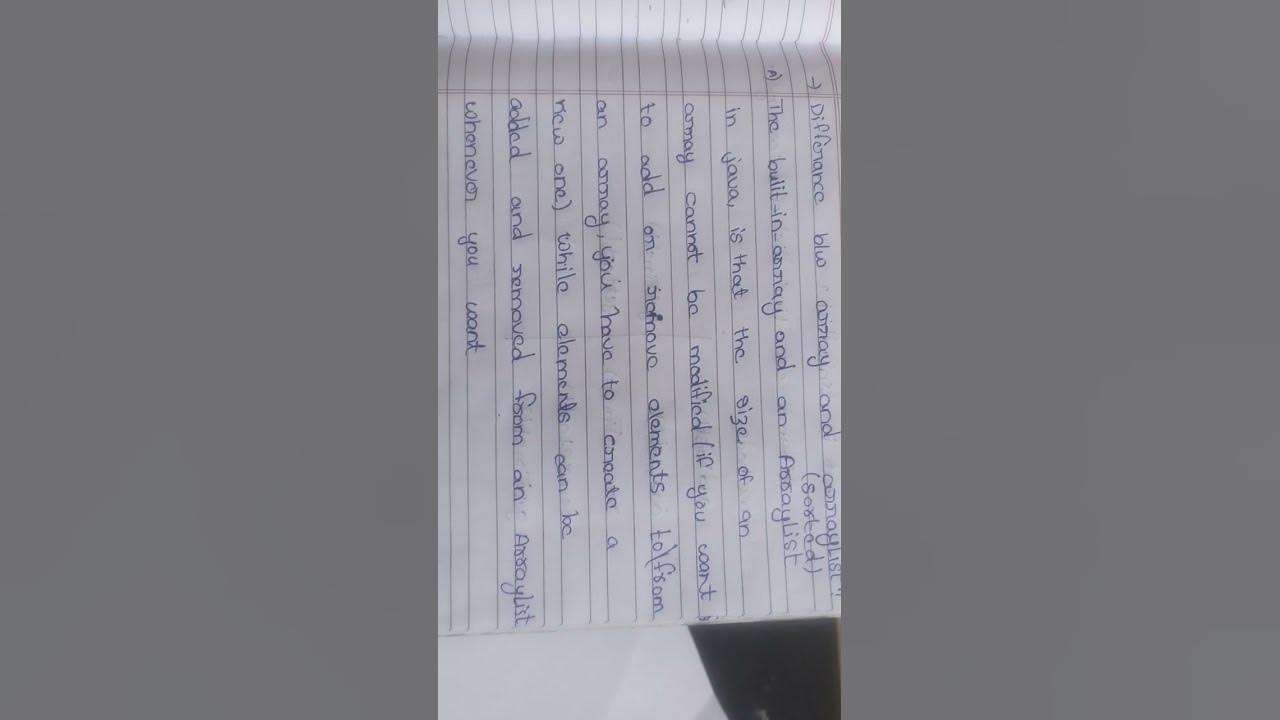 → Differance b/w array and arraylist
(sorted)
A) The bulit-in-array and an ArrayList
in java, is that the size of an
array cannot be modified (if you want
to add or remove elements to/from
an array, you have to create a
new one) while elements can be
added and removed from an ArrayList
whenever you want